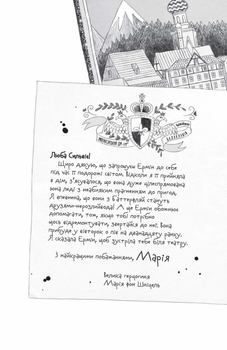 Люба Сильвіє!
Щиро дякую, що запросили Ермін до себе
під час її подорожі світом. Відколи я її прийняла
в дім, з'ясувалося, що вона дуже цілеспрямована
юна леді з неабияким прагненням до пригод.
Я впевнена, що вони з Баттерфляй стануть
друзями-нерозлийвода! А ще Ермін обожнює
допомагати, тож, якщо тобі потрібно
щось відремонтувати, звертайся до неї. Вона
прибуде у вівторок о пів на дванадцяту ранку.
Я сказала Ермін, щоб зустріла тебе біля театру.
З найкращими побажаннями, Марія
Велика герцогиня
Марія фон Шніцель